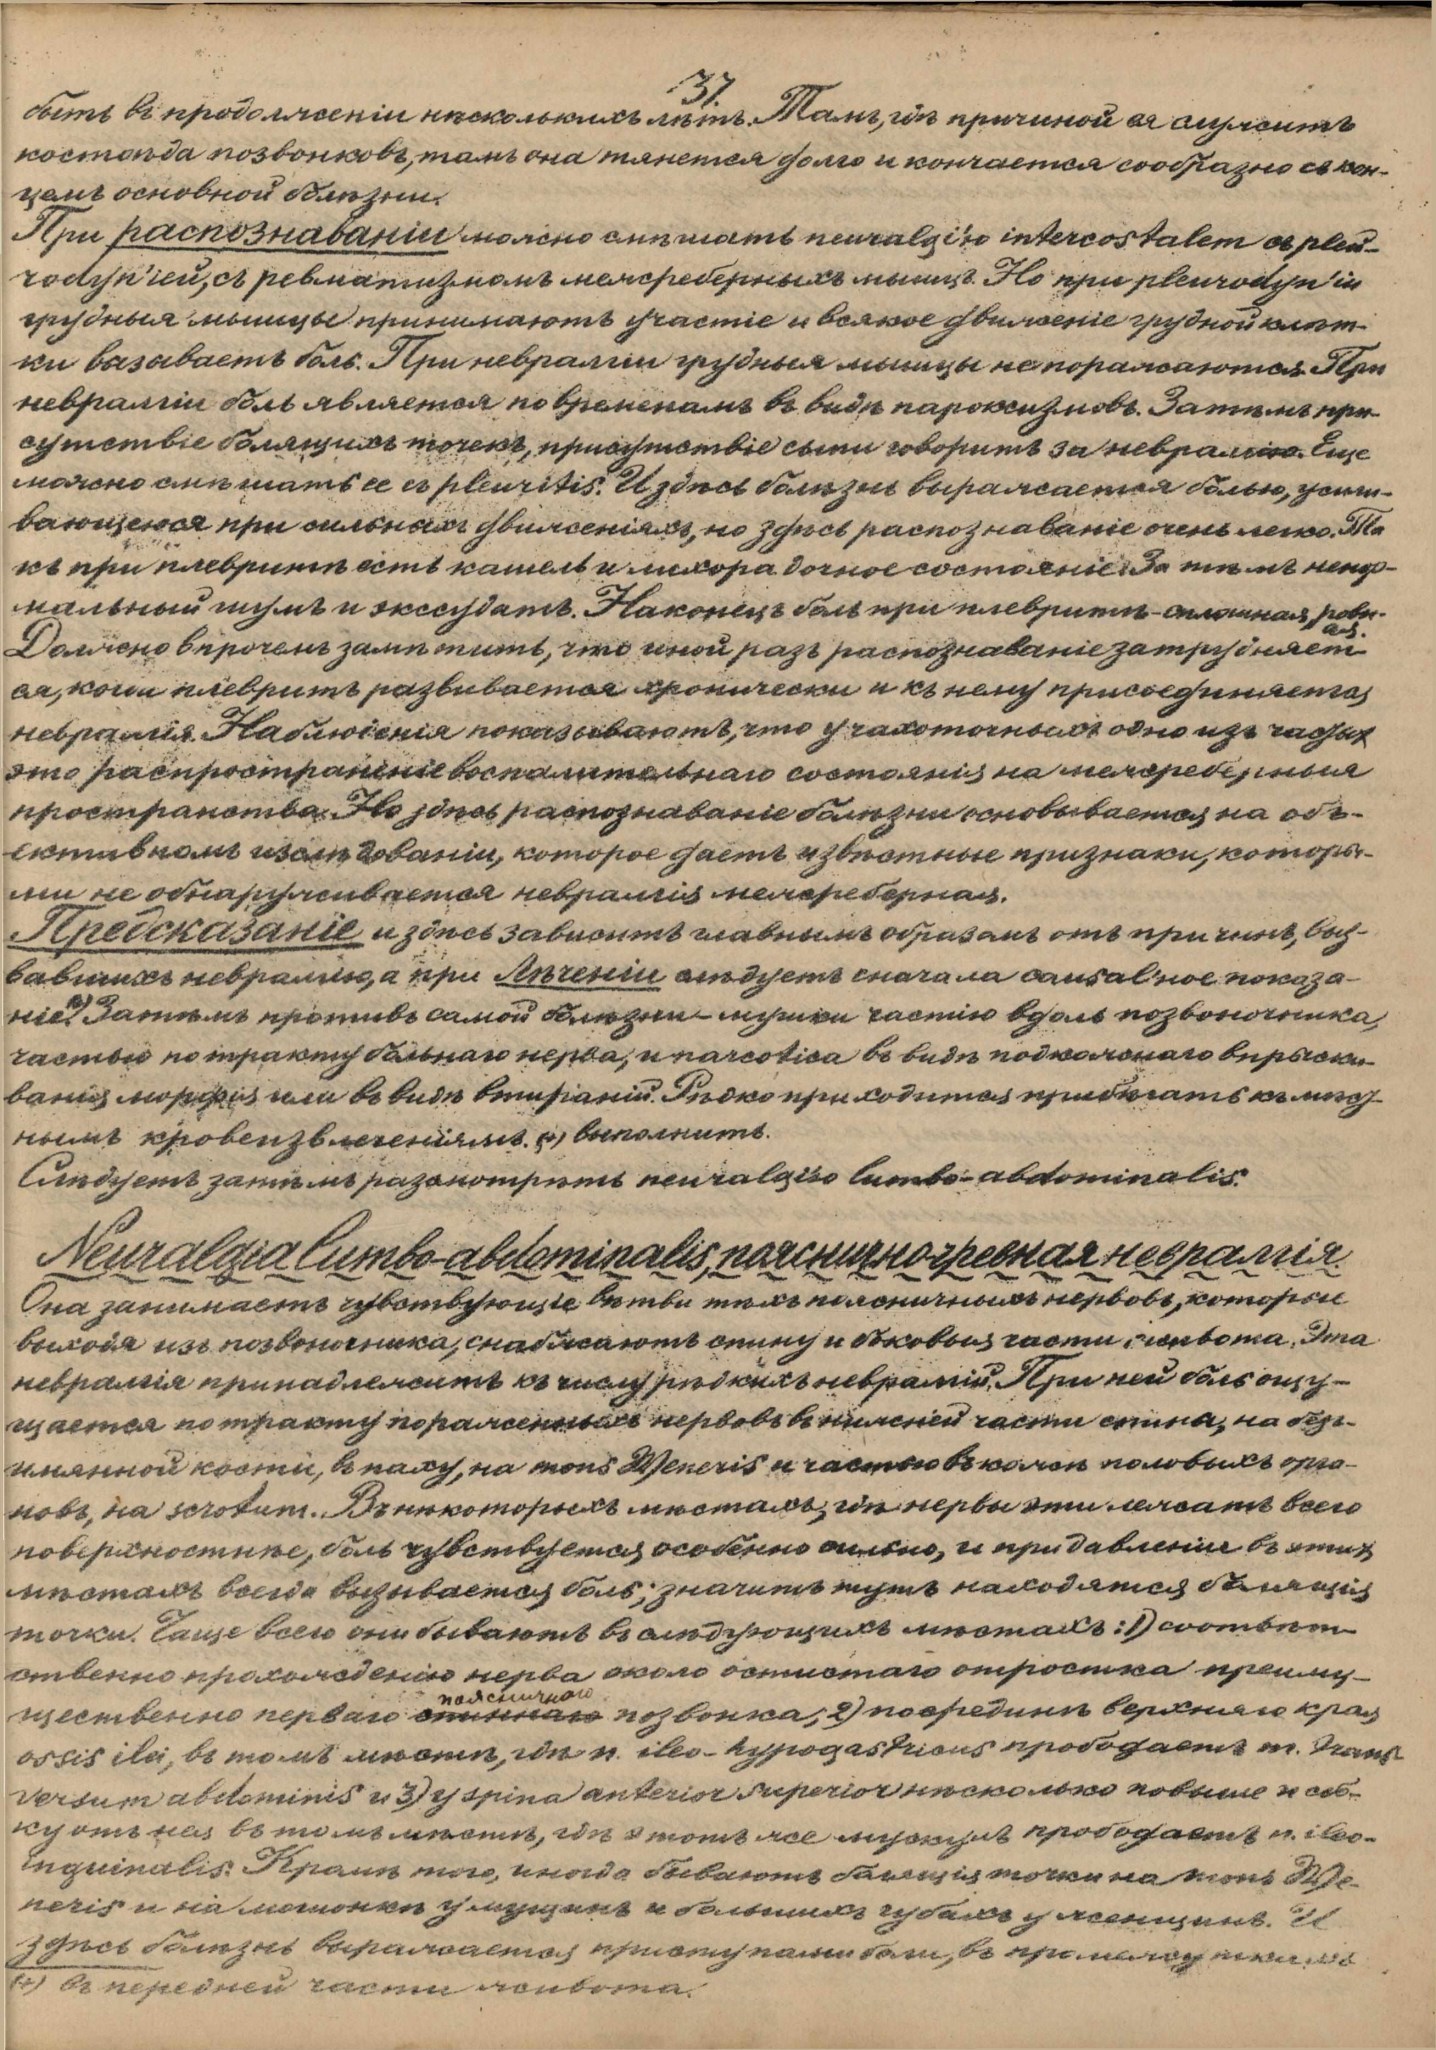 37.
быть въ продолженіи нѣсколькихъ лѣтъ. Тамъ, гдѣ причиной ея служитъ
костоѣда позвонковъ, тамъ она тянется долго и кончается сообразно съ кон-
цемъ основной болѣзни.
При распознаваніи можно смѣшать neuralgi'ю intercostalem съ pleu-
rodyn'iей, съ ревматизмомъ межреберныхъ мышцъ. Но при pleurodyn'iи
грудныя мышцы принимаютъ участіе и всякое движеніе грудной клѣт-
ки вазываетъ боль. При невралгіи грудныя мышцы не поражаются. При
невралгіи боль является по временамъ въ видѣ пароксизмовъ. Затѣмъ при-
сутствіе болящихъ точекъ, присутствіе сыпи говоритъ за невралгію. Еще
можно смѣшать ее съ pleuritis. И здѣсь болѣзнь выражается болью, усили-
вающеюся при сильныхъ движеніяхъ, но здѣсь распознаваніе очень легко. Та
къ при плевритѣ есть кашель и лихорадочное состояніе. Затѣмъ ненор-
мальный шумъ и экссудатъ. Наконецъ боль при плевритѣ - сплошная, ровн-
ая.
Должно впрочемъ замѣтить, что иной разъ распознаваніе затрудняет-
ся, коли плевритъ развивается хронически и къ нему присоединяется
невралгія. Наблюденія показываютъ, что у чахоточныхъ одно изъ частых
это распространеніе воспалительнаго состоянія на межреберныя
пространства. Но здѣсь распознаваніе болѣзни основывается на объ-
ективномъ изслѣдованіи, которое даетъ извѣстные признаки, которы-
ми не обнаруживается невралгія межреберная.
Предсказаніе и здѣсь зависитъ главнымъ образомъ отъ причинъ, выз-
вавшихъ невралгію, а при Лѣченіи слѣдуетъ сначала causal'ное показа-
ніе. Затѣмъ противъ самой болѣзни - мушки частію вдоль позвоночника,
частью по тракту больнаго нерва, и narcotica въ видѣ подкожнаго впрыски-
ванія морфія или въ видѣ втираній. Рѣдко приходится прибѣгать къ мѣст-
нымъ кровеизвлеченіямъ. (+) выполнить.
Слѣдуетъ затѣмъ разсмотрѣть neuralgi'ю lumbo-abdominalis.
Neuralgia lumbo-abdominalis, пояснично-чревная невралгія.
Она занимаетъ чувствующіе вѣтви тѣхъ поясничныхъ нервовъ, которые
выходя изъ позвоночника, снабжаютъ спину и боковыя части живота. Эта
невралгія принадлежитъ къ числу рѣдкихъ невралгій. При ней боль ощу-
щается по тракту пораженныхъ нервовъ въ нижней части спины, на безъ-
имянной кости, въ паху, на mons Weneris и частью въ кожѣ половыхъ орга-
новъ, на scrotum. Въ нѣкоторыхъ мѣстахъ, гдѣ нервы эти лежатъ всего
поверхностнѣе, боль чувствуется особенно сильно, и при давленіи въ этихъ
мѣстахъ всегда вызывается боль; значитъ тутъ находятся болящія
точки. Чаще всего они бываютъ въ слѣдующихъ мѣстахъ: 1) соотвѣт-
ственно прохожденію нерва около остистаго отростка преиму-
щественно перваго спиннаго поясничнаго позвонка; 2) посрединѣ верхняго края
ossis ilei, въ томъ мѣстѣ, гдѣ n. ileo-hypogastricus прободаетъ m. trans-
versum abdominis и 3) у spina anterior superior нѣсколько повыше и сбо-
ку отъ нея въ томъ мѣстѣ, гдѣ этотъ же мускулъ прободаетъ n. ileo-
inguinalis. Кромѣ того, иногда бываютъ болящія точки на mons We-
neris и на мошонкѣ у мущинъ и большихъ губахъ у женщинъ. И
здѣсь болѣзнь выражается приступами боли, въ промежуткахъ
(+) въ передней части живота.